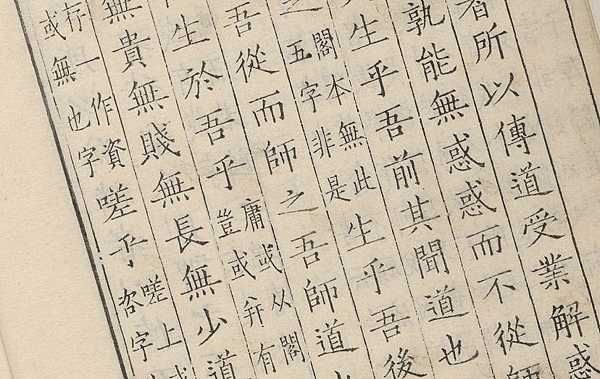 者所以傳道受業解惑
孰能無惑惑而不從師
生乎吾前其聞道也
之
閣本無此
五字非是
生乎吾後
吾從而師之吾師道
生於吾乎
庸或从閣
豈或并有
無貴無賤無長無少道
存一作資
或無也字
嗟乎
嗟上
咨字